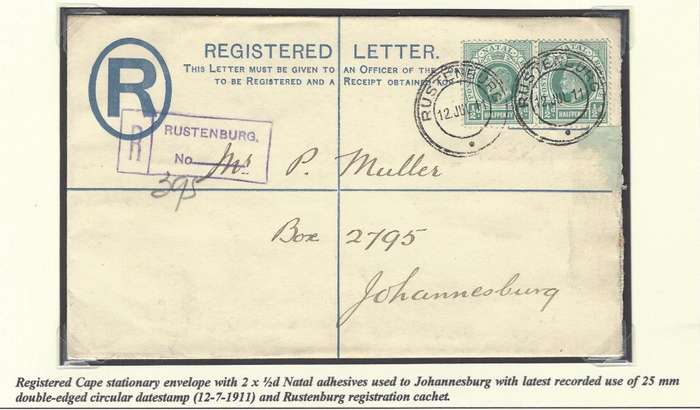 REGISTERED LETTER.
THIS LETTER MUST BE GIVEN TO AN OFFICER OF THE
TO BE REGISTERED AND A RECEIPT OBTAINED
R
NATAL
HALFPENNY
RUSTENBURG
12 JUL 11
NATAL
HALFPENNY
RUSTENBURG
12 JUL 11
R
RUSTENBURG.
No
395
Mr P. Muller
Box 2795
Johannesburg
Registered Cape stationary envelope with 2 x ½d Natal adhesives used to Johannesburg with latest recorded use of 25 mm
double-edged circular datestamp (12-7-1911) and Rustenburg registration cachet.